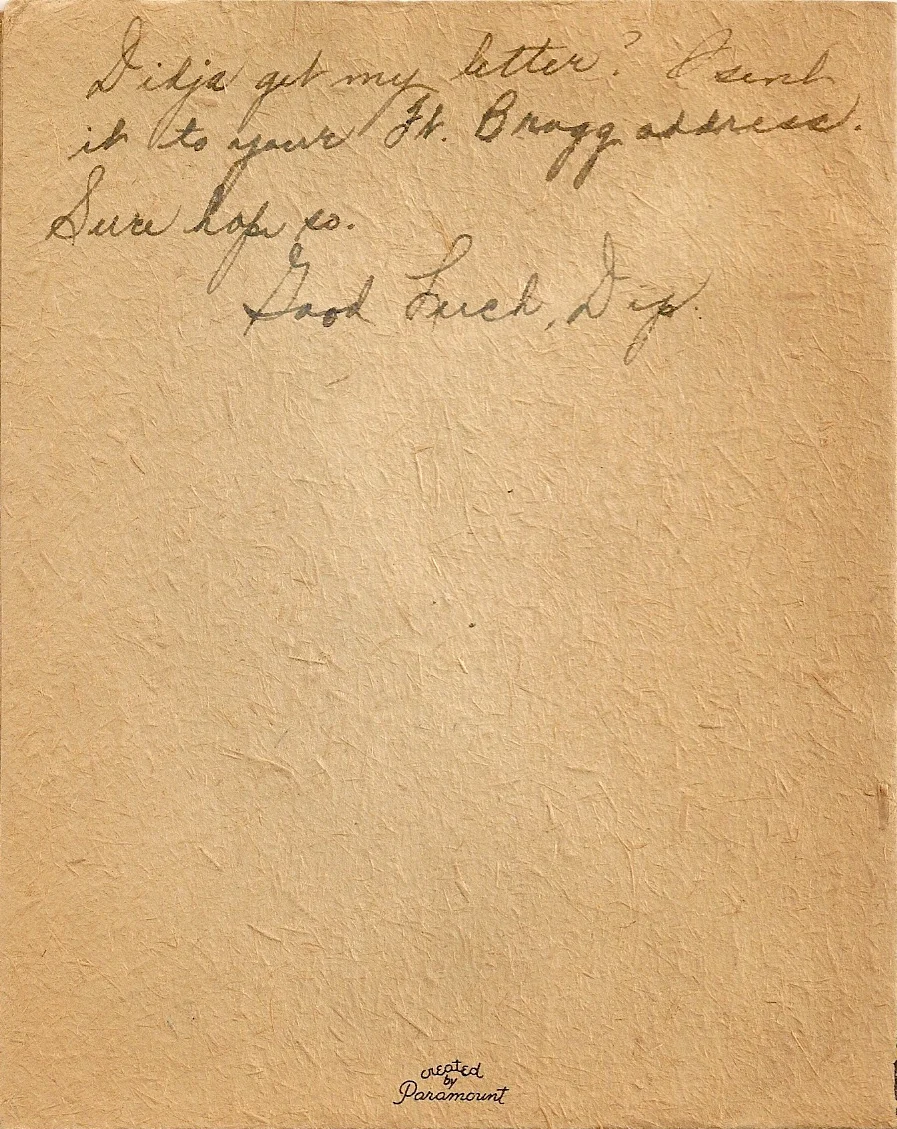 Didja get my letter? I sent
it to your Ft. Bragg address.
Sure hope so.
Good Luck, Dip.
created
by
Paramount